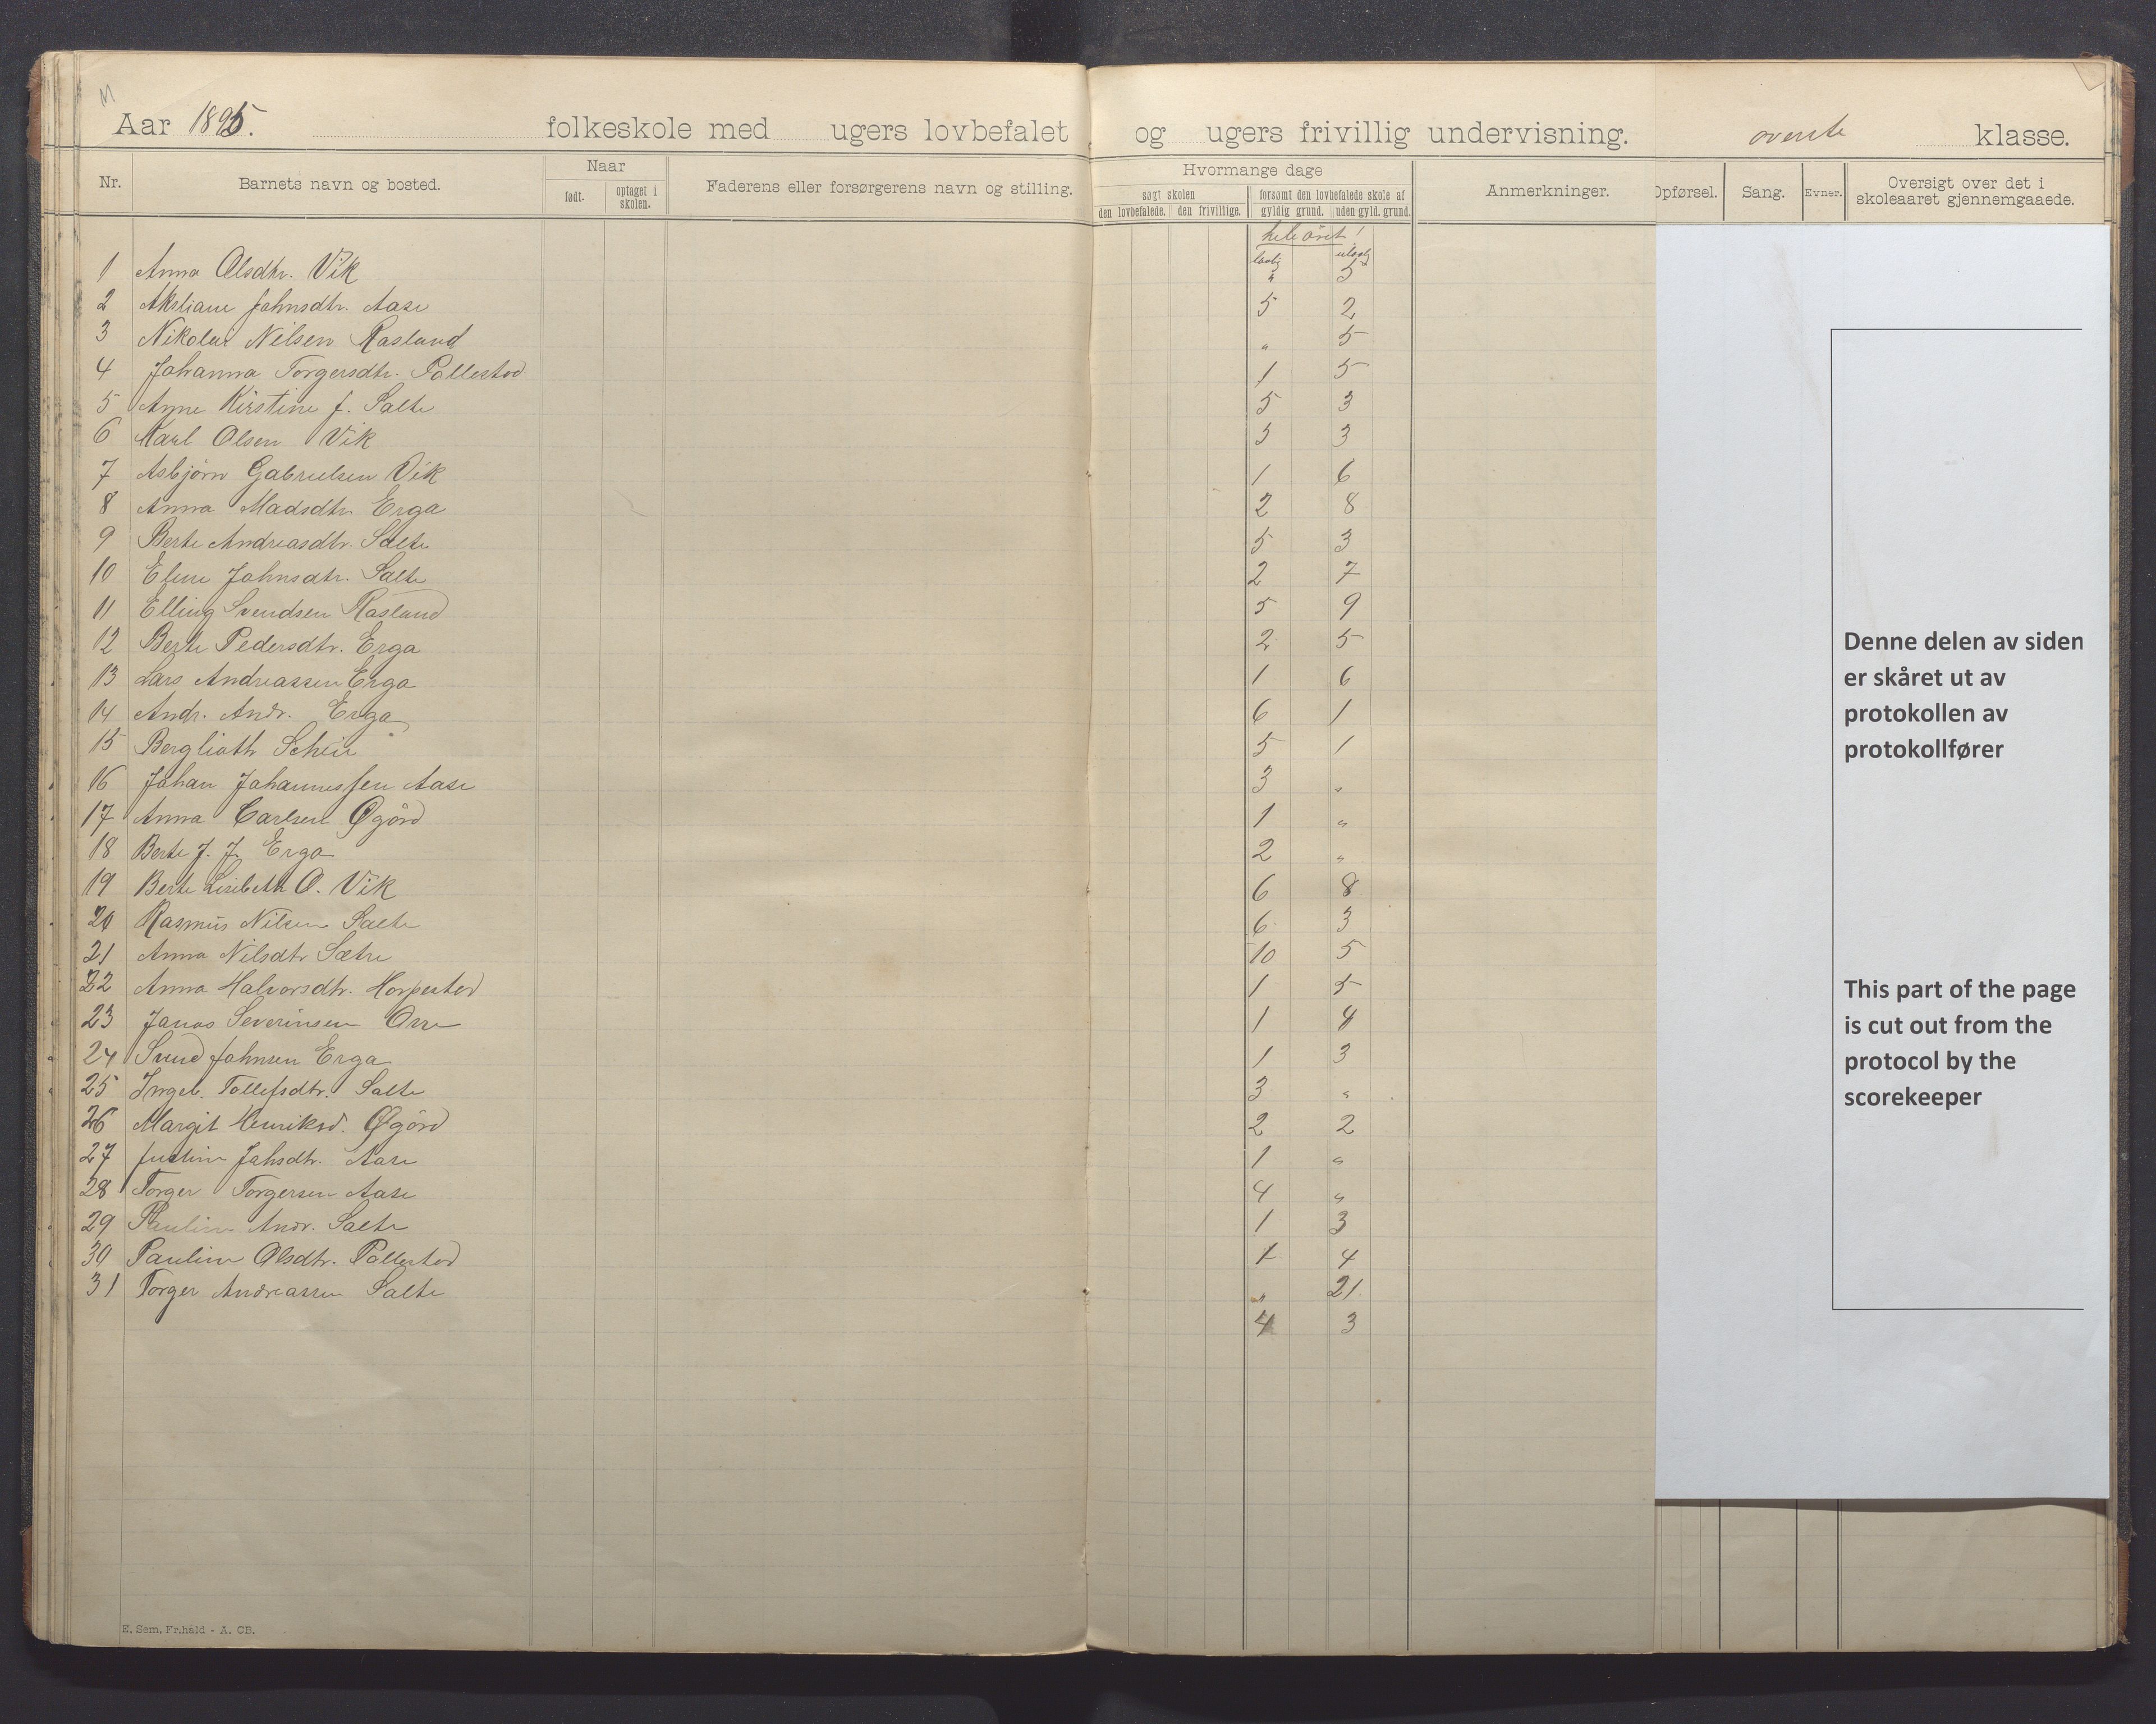 M
Aar 1895. folkeskole med ugers lovbefalet og ugers frivillig undervisning. øverste klasse.
Nr. Barnets navn og bosted. Naar født. optaget i skolen. Faderens eller forsørgerens navn og stilling. Hvormange dage søgt skolen den lovbefalede. den frivillige. forsømt den lovbefalede skole af gyldig grund. uden gyld. grund. Anmerkninger. Opførsel. Sang. Evner. Oversigt over det i skoleaaret gjennemgaaede.
hele året!
lovlig ulovlig
1 Anna Olsdtr. Vik " 5
2 Aksliane Johnsdtr. Aase 5 2
3 Nikolai Nilsen Rasland " 5
4 Johanna Torgersdtr. Pollestad 1 5
5 Ane Kirstine J. Salte 5 3
6 Karl Olsen Vik 3 3
7 Asbjørn Gabrielsen Vik 1 6
8 Anna Madsdtr. Erga 2 8
9 Berte Andreasdtr. Salte 5 3
10 Eline Johnsdtr. Salte 2 7
11 Elling Svendsen Rasland 5 9
12 Berte Pedersdtr. Erga 2 5
13 Lars Andreassen Erga 1 6
14 Andr. Andr. Erga 6 1
15 Berglioth Scheie 5 1
16 Johan Johannessen Aase 3 "
17 Anna Carlsen Øgård 1 "
18 Berte J. J. Erga 2 "
19 Berte Lisibeth O. Vik 6 8
20 Rasmus Nilsen Salte 6 3
21 Anna Nilsdtr Sætre 10 5
22 Anna Halvorsdtr. Horpestad 1 5
23 Jonas Severinsen Orre 1 8
24 Svend Johnsen Erga 1 3
25 Ingeb. Tollefsdtr. Salte 3 "
26 Margit Henriksd. Øgård 2 2
27 Justine Johsdtr. Aase 1 "
28 Torger Torgersen Aase 4 "
29 Pauline Andr. Salte 1 3
30 Pauline Olsdtr. Pollestad 1 4
31 Torger Andreassen Salte " 21.
4 3
Denne delen av siden
er skåret ut av
protokollen av
protokollfører
This part of the page
is cut out from the
protocol by the
scorekeeper
E. Sem, Fr.hald - A. CB.